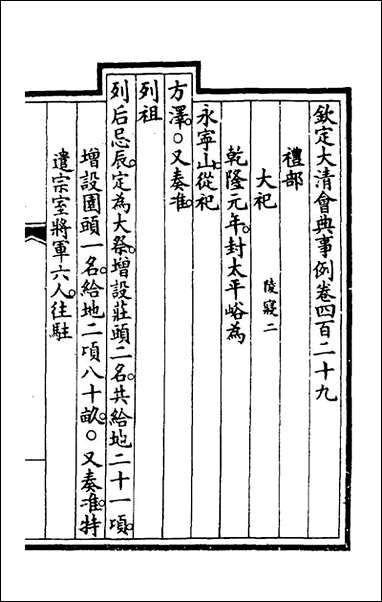 欽定大清會典事例卷四百二十九
禮部
大祀 陵寢二
乾隆元年。封太平峪為
永寧山。從祀
方澤。○又奏准。
列祖
列后忌辰。定為大祭。增設莊頭二名。共給地二十一項。
增設園頭一名。給地二項八十畝。○又奏准。特
遣宗室將軍六人。往駐